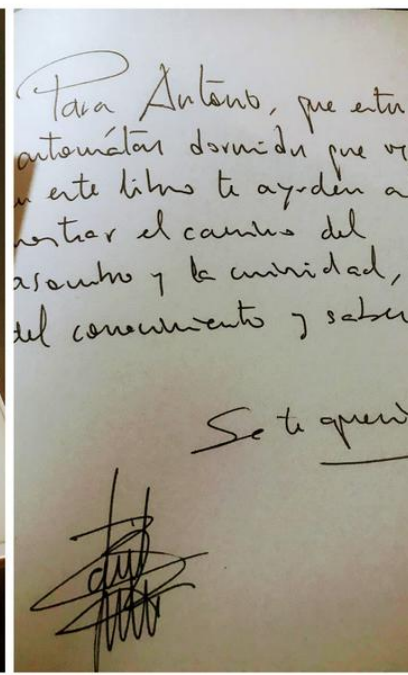 Para Antonio, que estos
autómatas dormidos que v
n este libro te ayuden a
ostrar el camino del
asombro y la curiosidad,
del conocimiento y saber
Se te quer